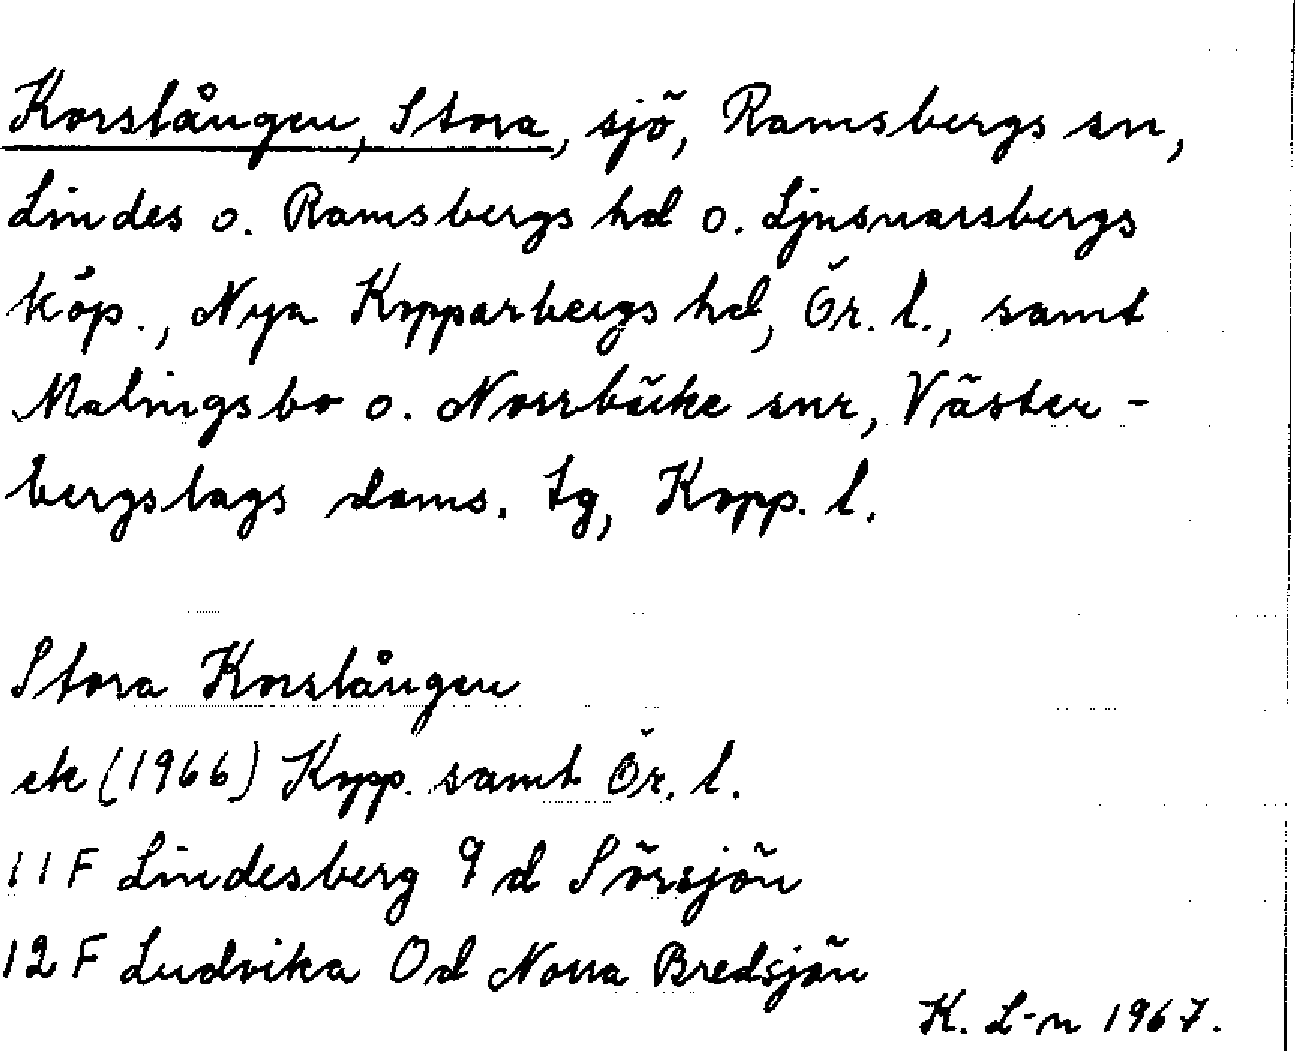 Korslången, Stora, sjö, Ramsbergs sn,
Lindes o. Ramsbergs hd o. Ljusnarsbergs
köp., Nya Kopparbergs hd, Ör. l., samt
Malingsbo o. Norrbärke snr, Väster-
bergslags doms. tg, Kopp. l.
Stora Korslången
ek (1966) Kopp. samt Ör. l.
11 F Lindesberg 9 d Sörsjön
12 F Ludvika 0d Norra Bredsjön
K. L-n 1967.